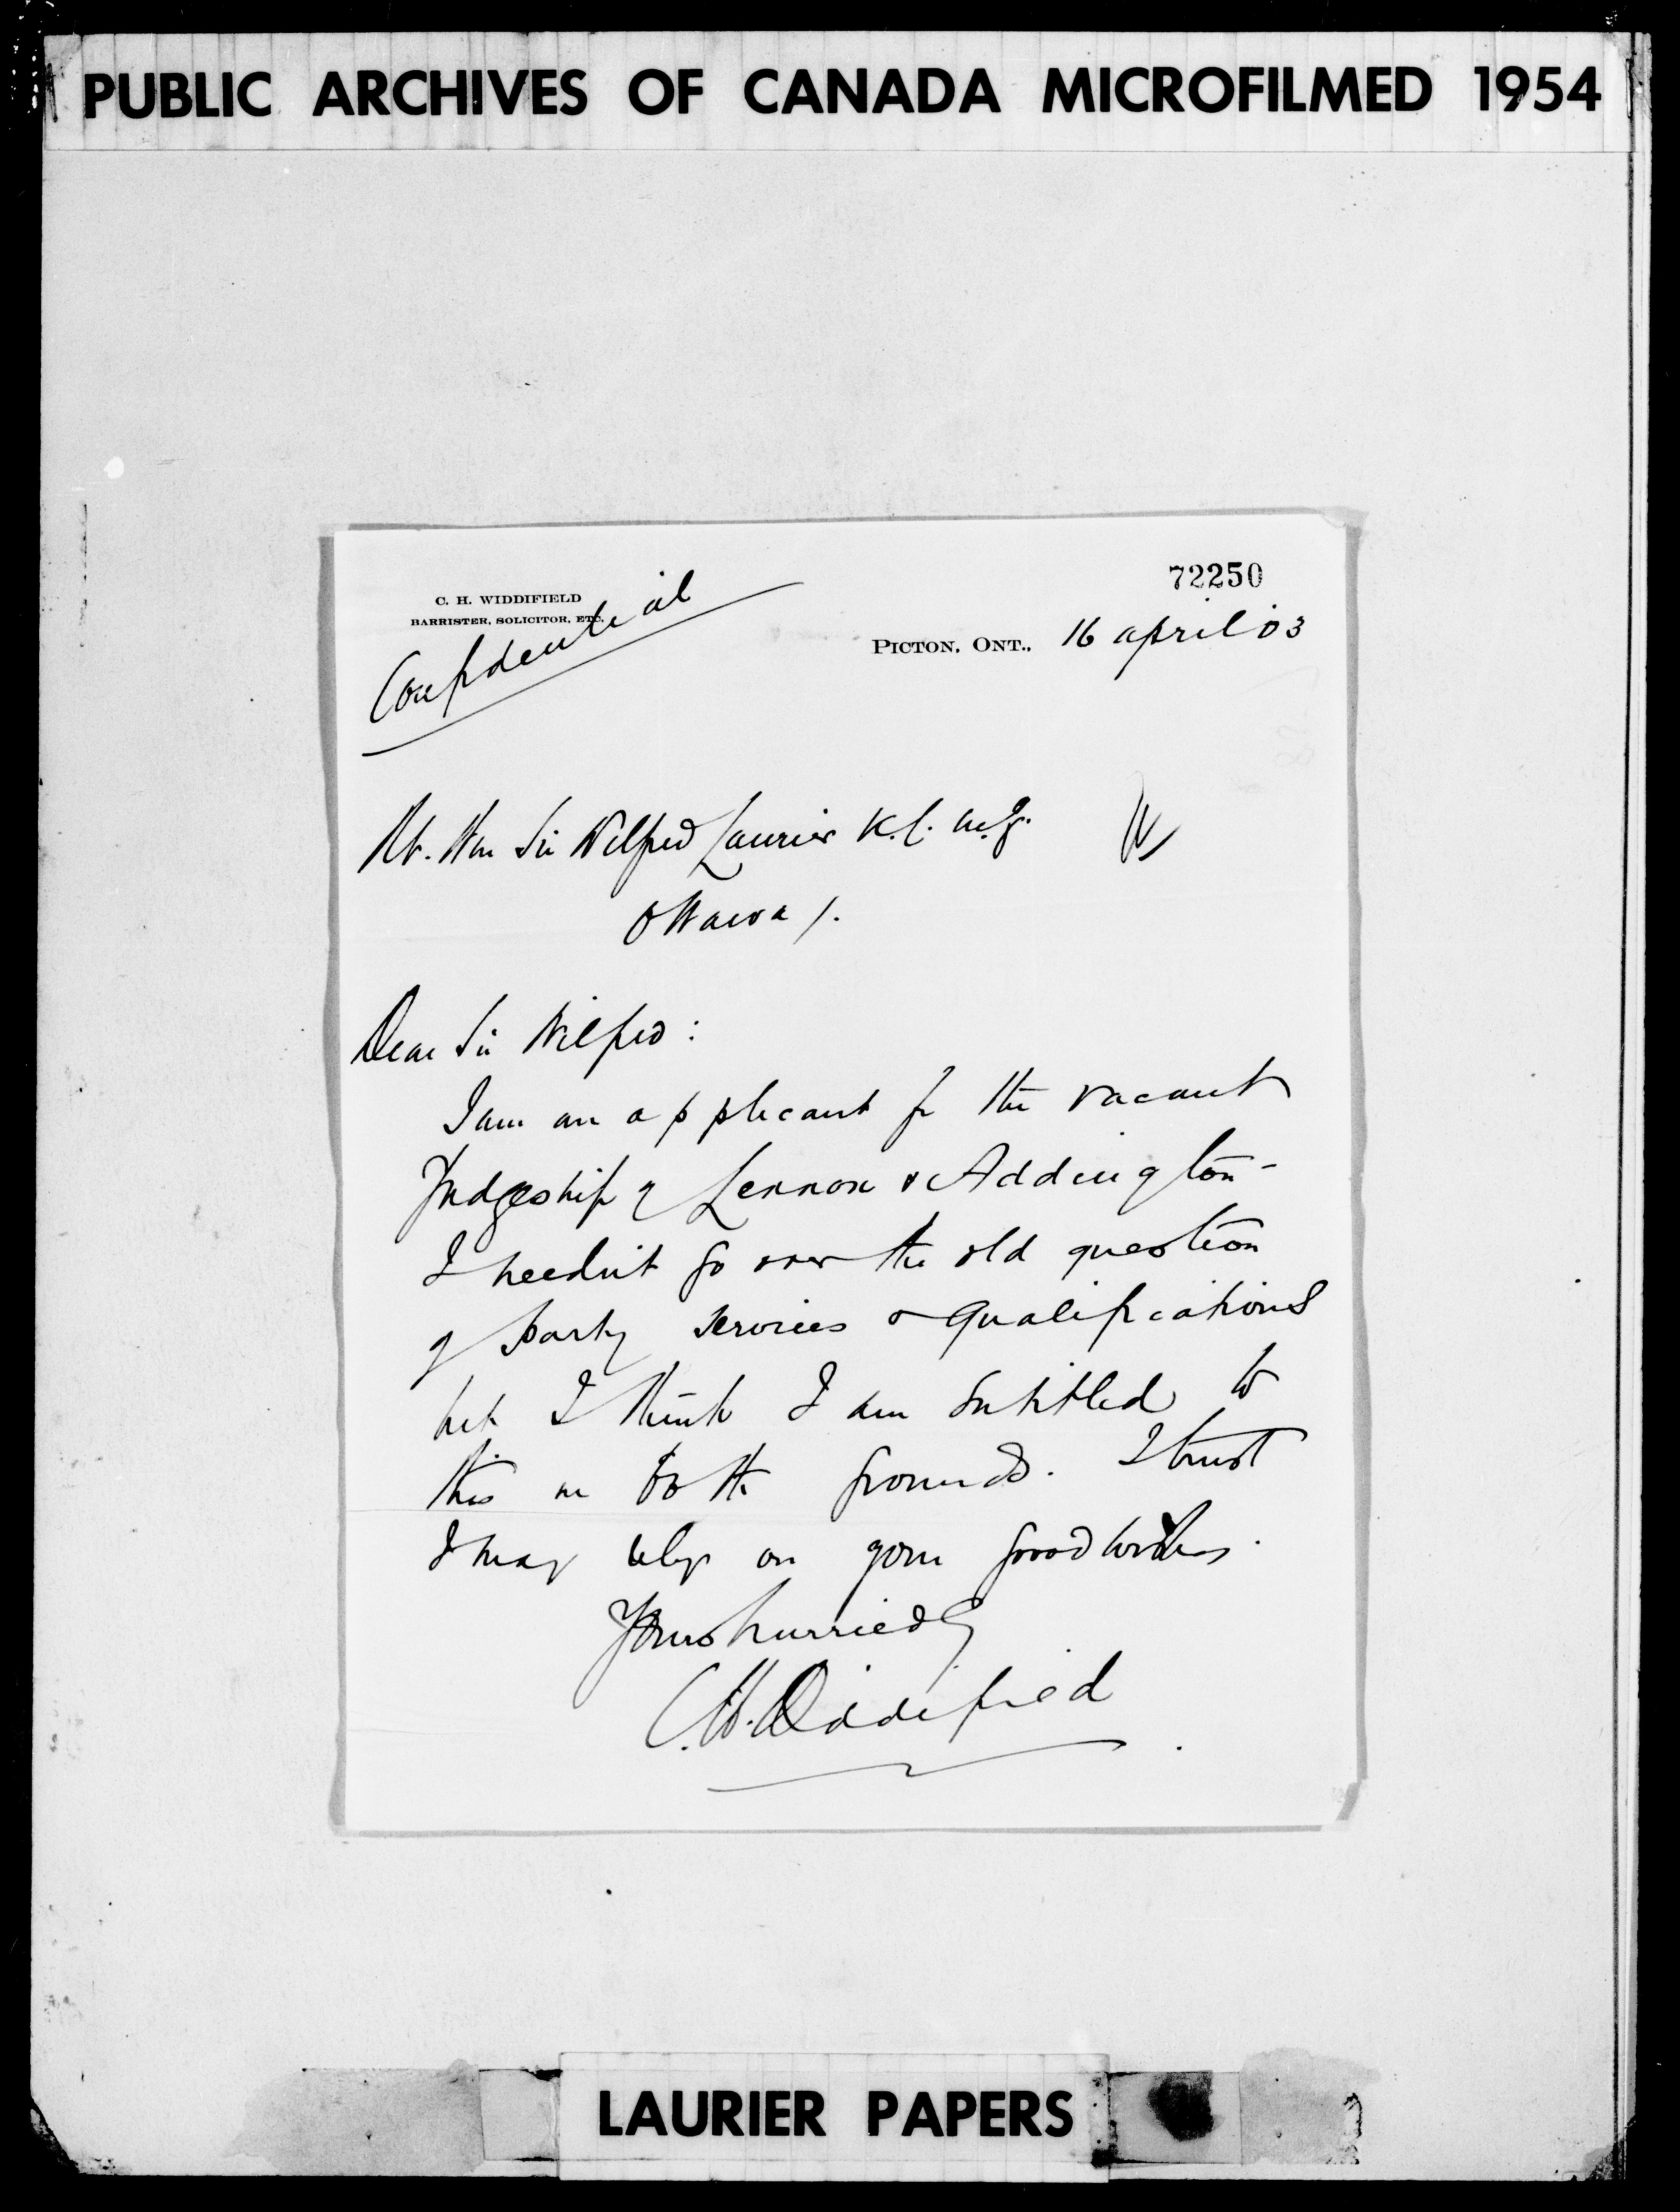 PUBLIC ARCHIVES OF CANADA MICROFILMED 1954
72250
C. H. WIDDIFIELD
BARRISTER, SOLICITOR, ETC.
Confidential
PICTON, ONT., 16 april 03
Rt. Hon Sir Wilfred Laurier K.C.M.G.
Ottawa /.
Dear Sir Wilfred:
I am an applicant for the vacant
Judgeship of Lennox & Addington -
I needn't go over the old question
of party services & qualifications
but I think I am entitled to
this on both grounds. I trust
I may rely on your good wishes.
Yours hurriedly
C. H. Widdifield
LAURIER PAPERS